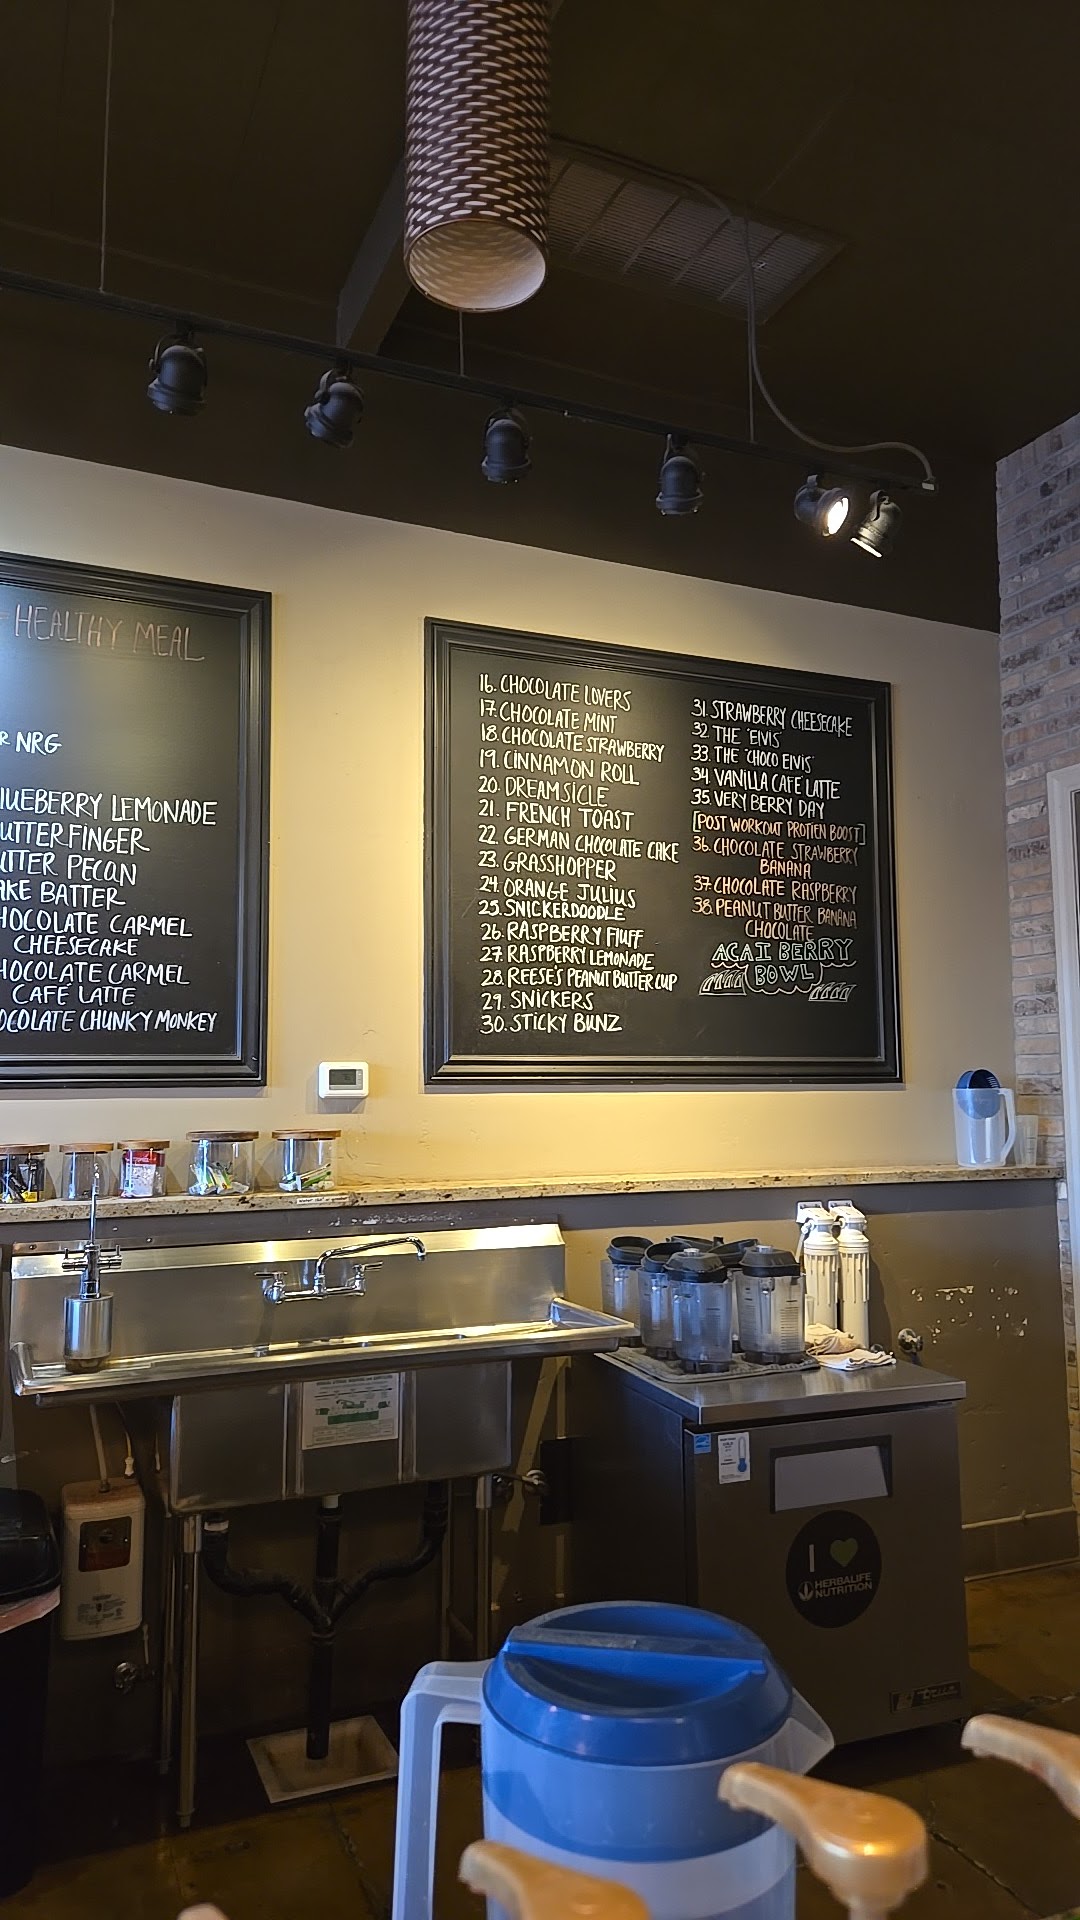 HEALTHY MEAL
NRG
LEMONADE
PECAN
BATTER
CARMEL
CHEESECAKE
CARMEL
CAFÉ LATTE
CHUNKY MONKEY
16. CHOCOLATE LOVERS
17. CHOCOLATE MINT
18. CHOCOLATE STRAWBERRY
19. CINNAMON ROLL
20. DREAMSICLE
21. FRENCH TOAST
22. GERMAN CHOCOLATE CAKE
23. GRASSHOPPER
24. ORANGE JULIUS
25. SNICKERDOODLE
26. RASPBERRY FLUFF
27. RASPBERRY LEMONADE
28. REESE'S PEANUT BUTTER CUP
29. SNICKERS
30. STICKY BUNZ
31. STRAWBERRY CHEESECAKE
32. THE "ELVIS"
33. THE "CHOCO ELVIS"
34. VANILLA CAFE LATTE
35. VERY BERRY DAY
[POST WORKOUT PROTIEN BOOST]
36. CHOCOLATE STRAWBERRY
BANANA
37. CHOCOLATE RASPBERRY
38. PEANUT BUTTER BANANA
CHOCOLATE
ACAI BERRY
BOWL
I
HERBALIFE
NUTRITION
True